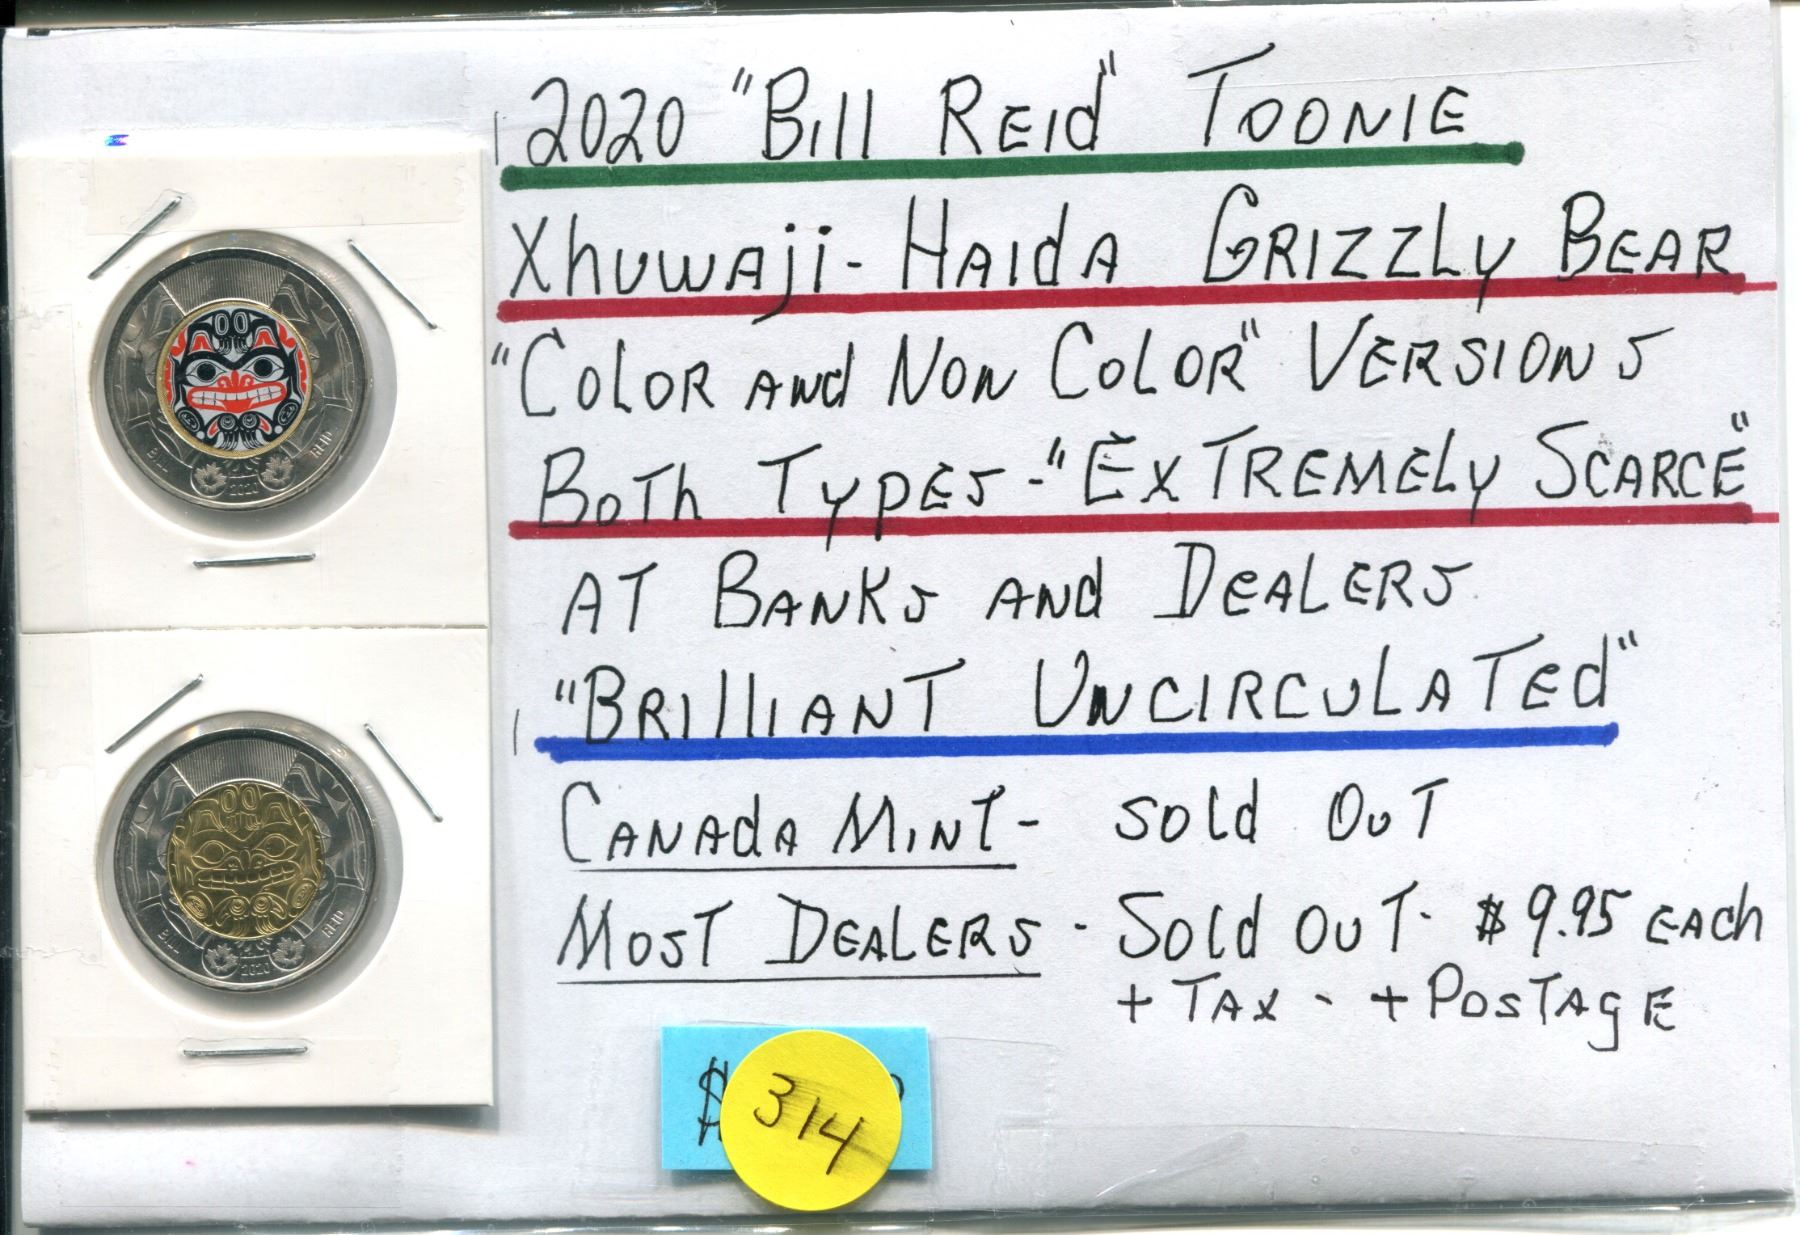 2020 "Bill Reid" Toonie
Xhuwaji - Haida Grizzly Bear
"Color and Non Color" Versions
Both Types - "Extremely Scarce"
at Banks and Dealers
"Brilliant Uncirculated"
Canada Mint - Sold Out
Most Dealers - Sold Out - $9.95 each
+ Tax - + Postage
$
314
BILL REID
2020
BILL REID
2020